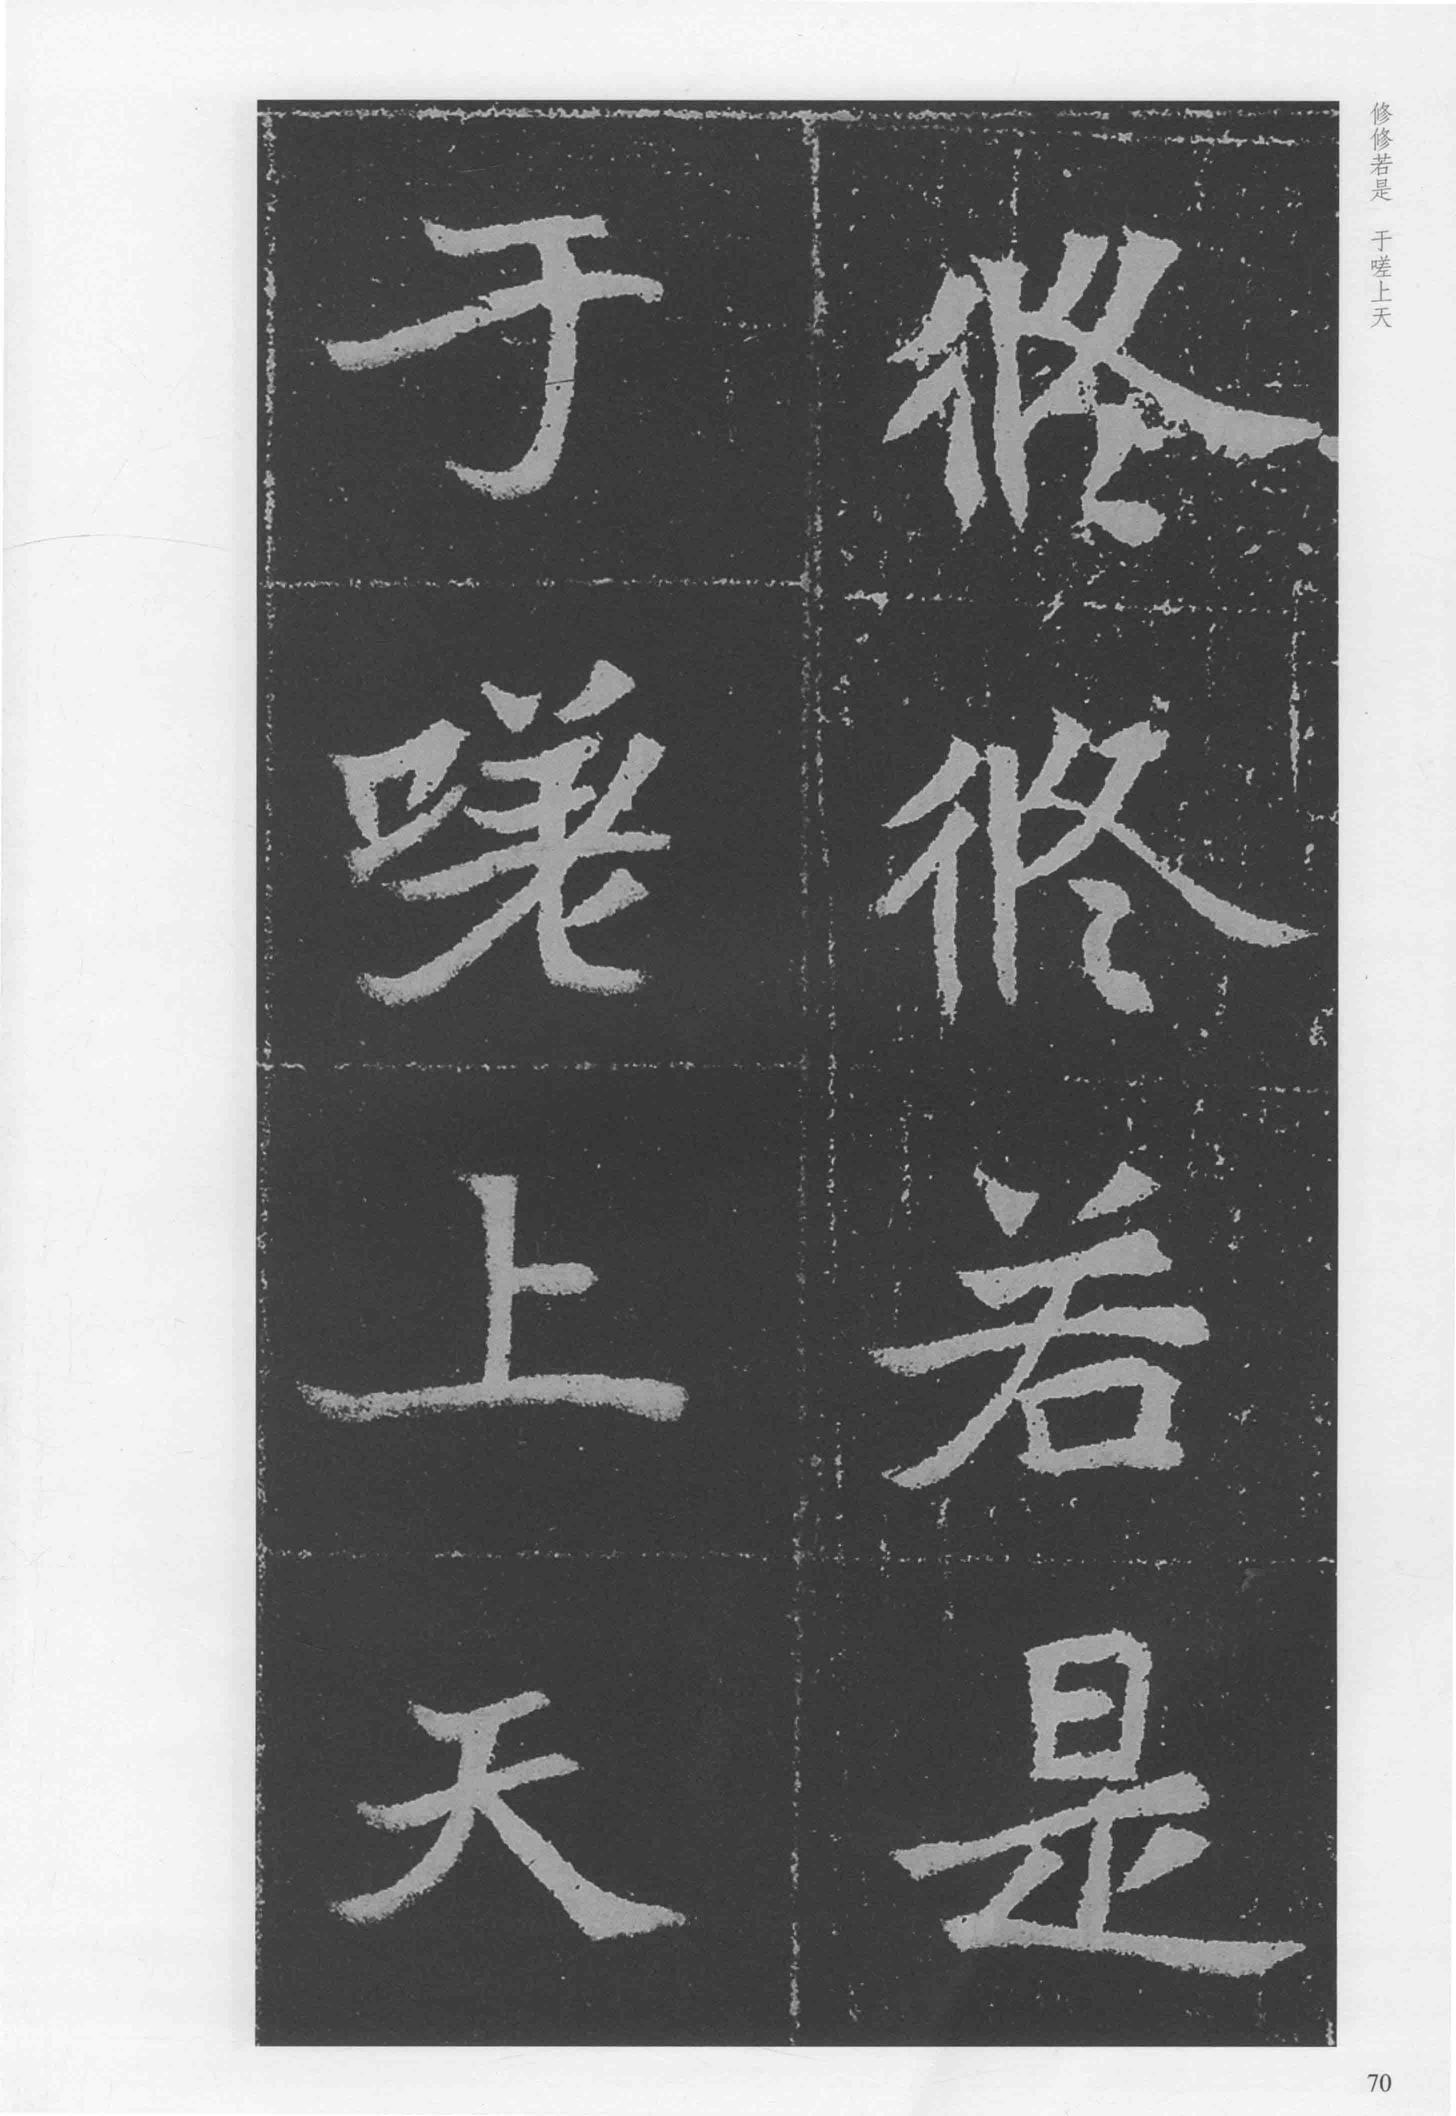 修修若是　于嗟上天
修修若是
于嗟上天
70